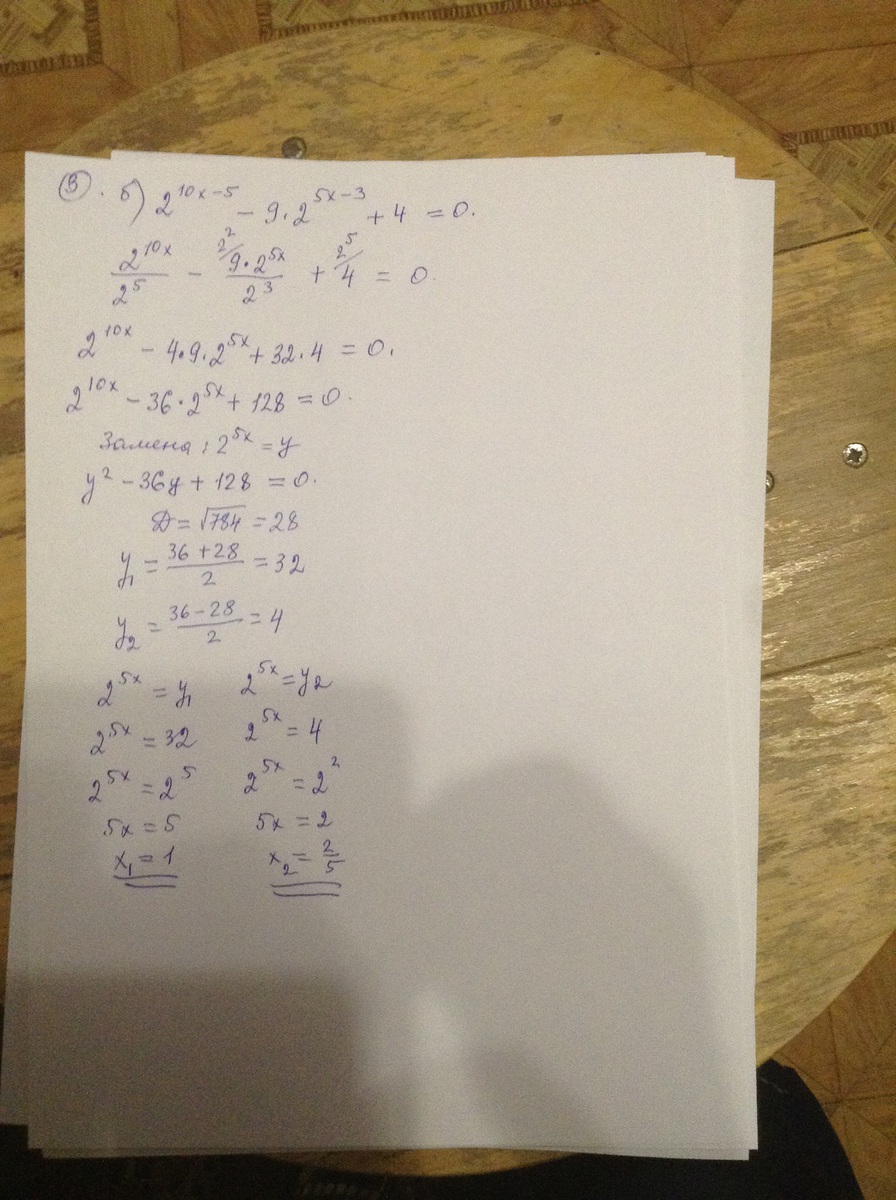 ③. б) 2^{10x-5} - 9·2^{5x-3} + 4 = 0.
\frac{2^{10x}}{2^5} - ^{2^2/}\frac{9·2^{5x}}{2^3} + ^{2^5/}4 = 0.
2^{10x} - 4·9·2^{5x} + 32·4 = 0.
2^{10x} - 36·2^{5x} + 128 = 0.
Замена: 2^{5x} = y
y^2 - 36y + 128 = 0.
D = √784 = 28
y_1 = \frac{36+28}{2} = 32
y_2 = \frac{36-28}{2} = 4
2^{5x} = y_1 2^{5x} = y_2
2^{5x} = 32 2^{5x} = 4
2^{5x} = 2^5 2^{5x} = 2^2
5x = 5 5x = 2
x_1 = 1 x_2 = \frac{2}{5}